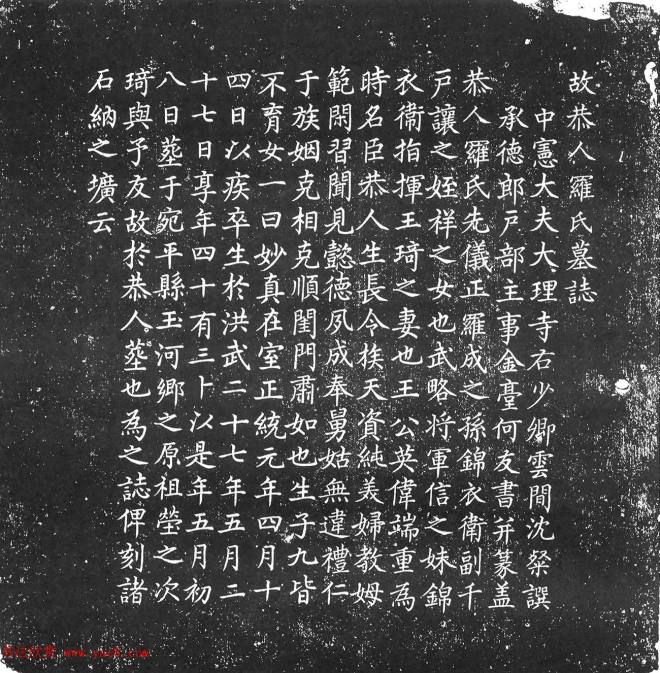 故恭人羅氏墓誌
中憲大夫大理寺右少卿雲間沈粲譔
承德郎戶部主事金臺何友書并篆盖
恭人羅氏先儀正羅成之孫錦衣衛副千
戶讓之姪祥之女也武略将軍信之妹錦
衣衛指揮王琦之妻也王公英偉端重為
時名臣恭人生長令族天資純美婦教姆
範閑習聞見懿德夙成奉舅姑無違禮仁
于族姻克相克順閨門肅如也生子九皆
不育女一曰妙真在室正統元年四月十
四日以疾卒生於洪武二十七年五月二
十七日享年四十有三卜以是年五月初
八日塟于宛平縣玉河鄉之原祖塋之次
琦與予友故於恭人塟也為之誌俾刻諸
石納之壙云
www.yac8.com